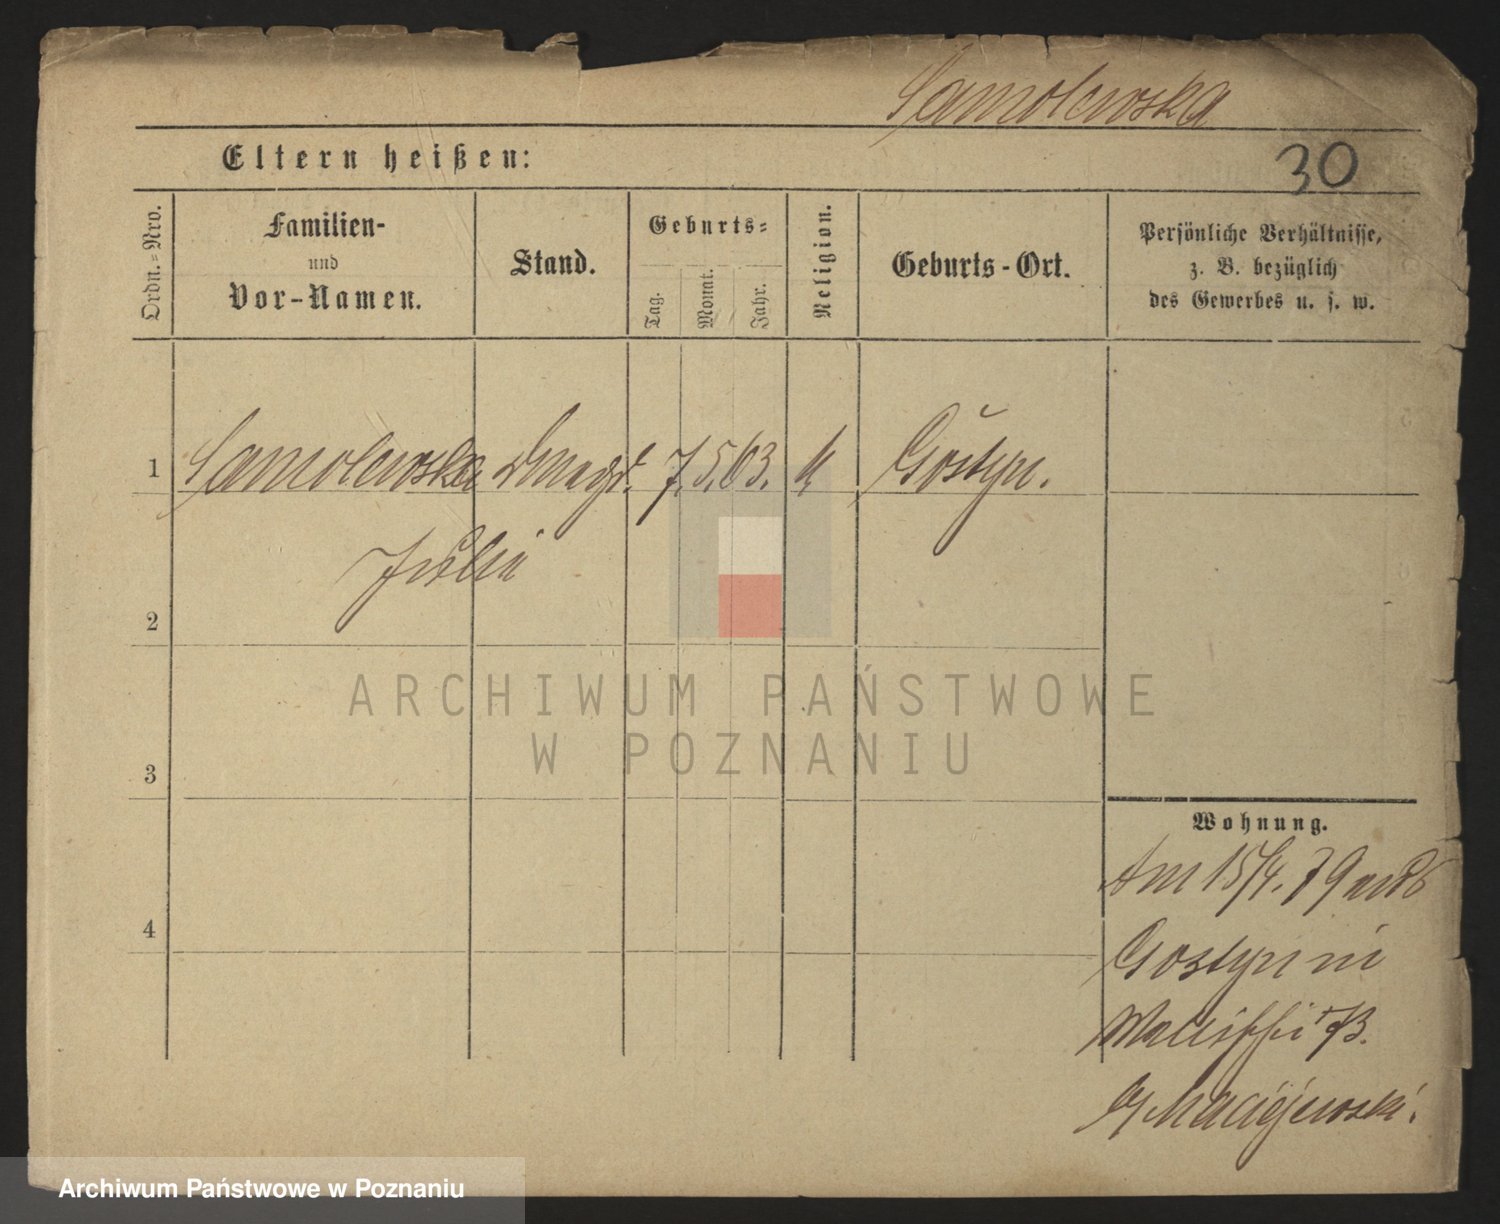 Samolewska
Eltern heißen:
30
Ordn.-Nro.
Familien-
und
Vor-Namen.
Stand.
Geburts-
Tag.
Monat.
Jahr.
Religion.
Geburts-Ort.
Persönliche Verhältnisse,
z. B. bezüglich
des Gewerbes u. s. w.
1 Samolewska 7. 5. 63. k Gostyn.
Julia
2
ARCHIWUM PAŃSTWOWE
W POZNANIU
3
Wohnung.
Am 15/4. 79
4
Gostyn
73.
Maciejewski.
Archiwum Państwowe w Poznaniu